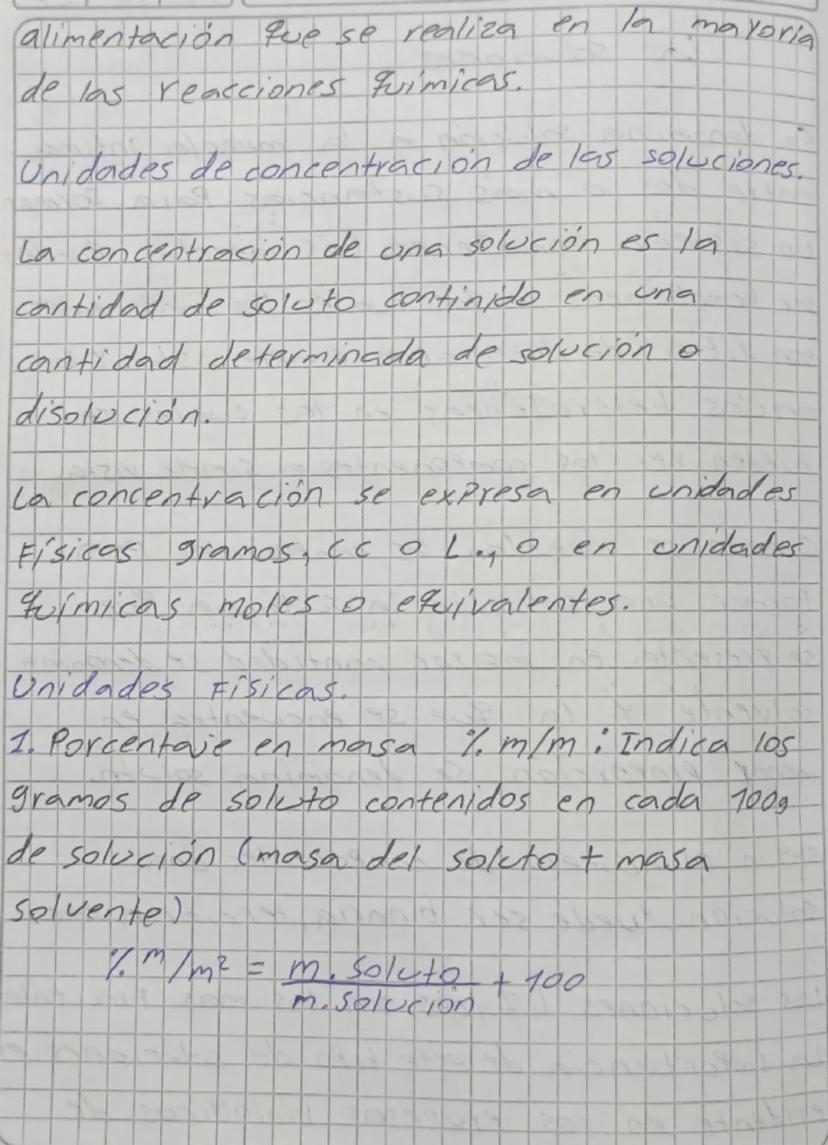 alimentación que se realiza en la mayoria
de las reacciones químicas.
Unidades de concentración de las soluciones.
La concentración de una solución es la
cantidad de soluto continido en una
cantidad determinada de solución o
disolución.
La concentración se expresa en unidades
Físicas gramos, cc o L., o en unidades
químicas moles o equivalentes.
Unidades Físicas.
1. Porcentaje en masa % m/m : Indica los
gramos de soluto contenidos en cada 100g
de solución (masa del soluto + masa
solvente)
% m/m² = m. soluto / m. solución + 100